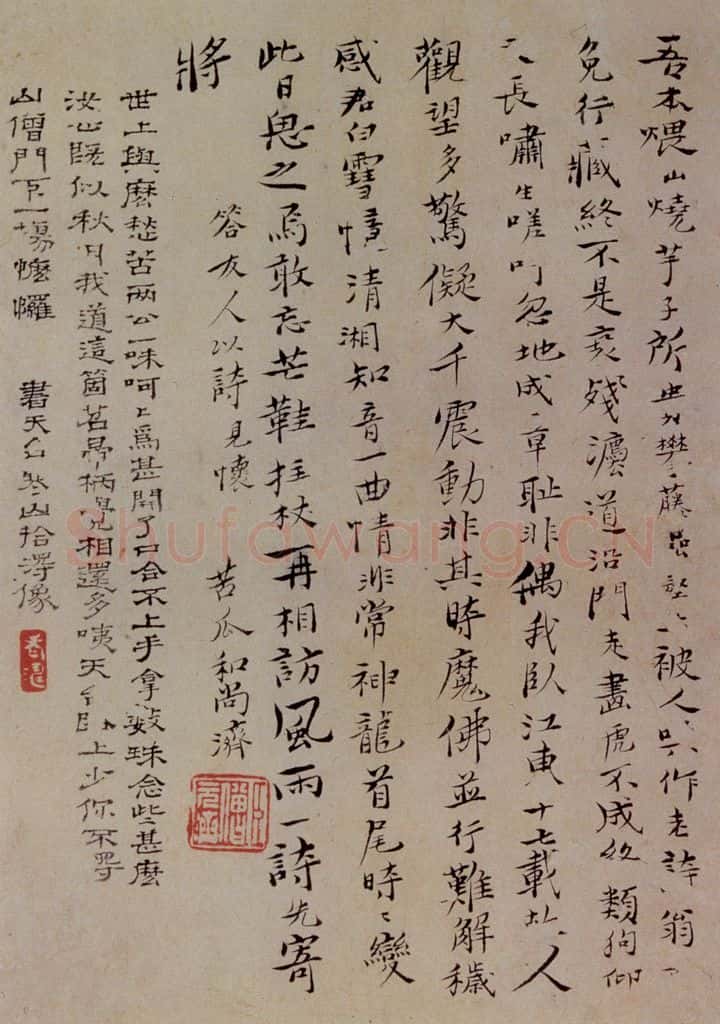 吾本煨山燒芋子所此樊藤被人只作老詩翁〻
免行藏終不是衰殘瀍道沿門走畫虎不成終類狗仰
天長嘯生嗟吁忽地成章耻非偶我臥江東十七載故人
觀望多驚儗大千震動非其時魔佛並行難解穢
感君白雪懷清湘知音一曲情非常神龍首尾時〻變
此日思之焉敢忘芒鞋拄杖再相訪風雨一詩先寄
將
答友人以詩見懷 苦瓜和尚濟
世上與麼愁苦两公一味呵〻爲甚開了口合不上手拿數珠念些甚麼
汝心旣似秋月我道這箇苕帚柄兒相還多咦天台上少你不得
山僧門下一場懡㦬 書天台寒山拾得像
Shufawang.CN